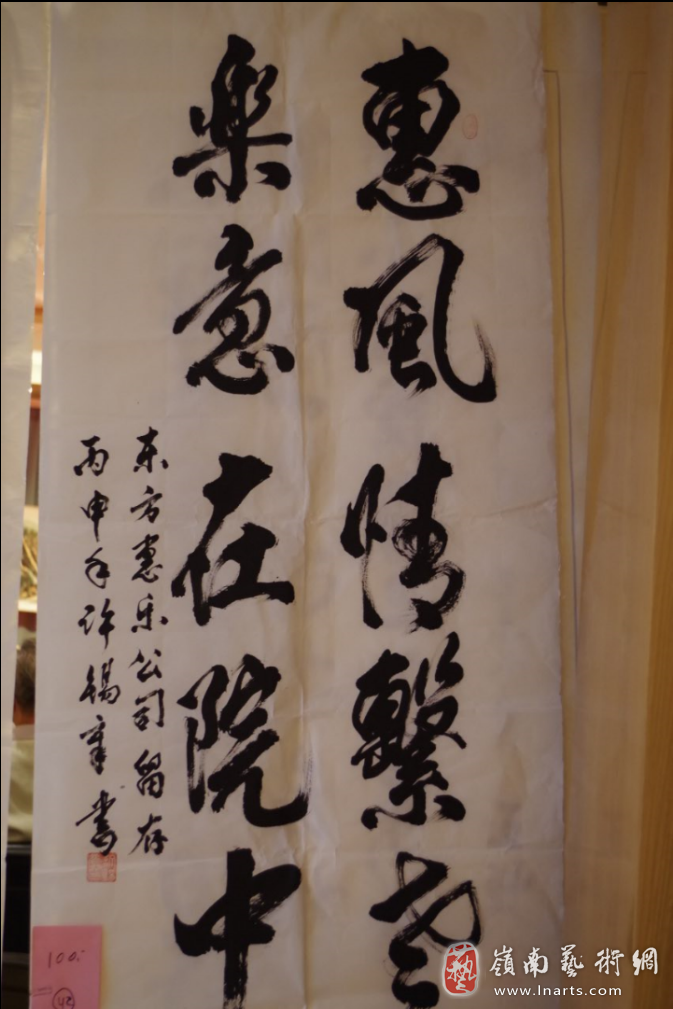 惠風情繫老
樂意在院中
东方惠乐公司留存
丙申年许锡章书
100.-
42
嶺南藝術網
www.lnarts.com